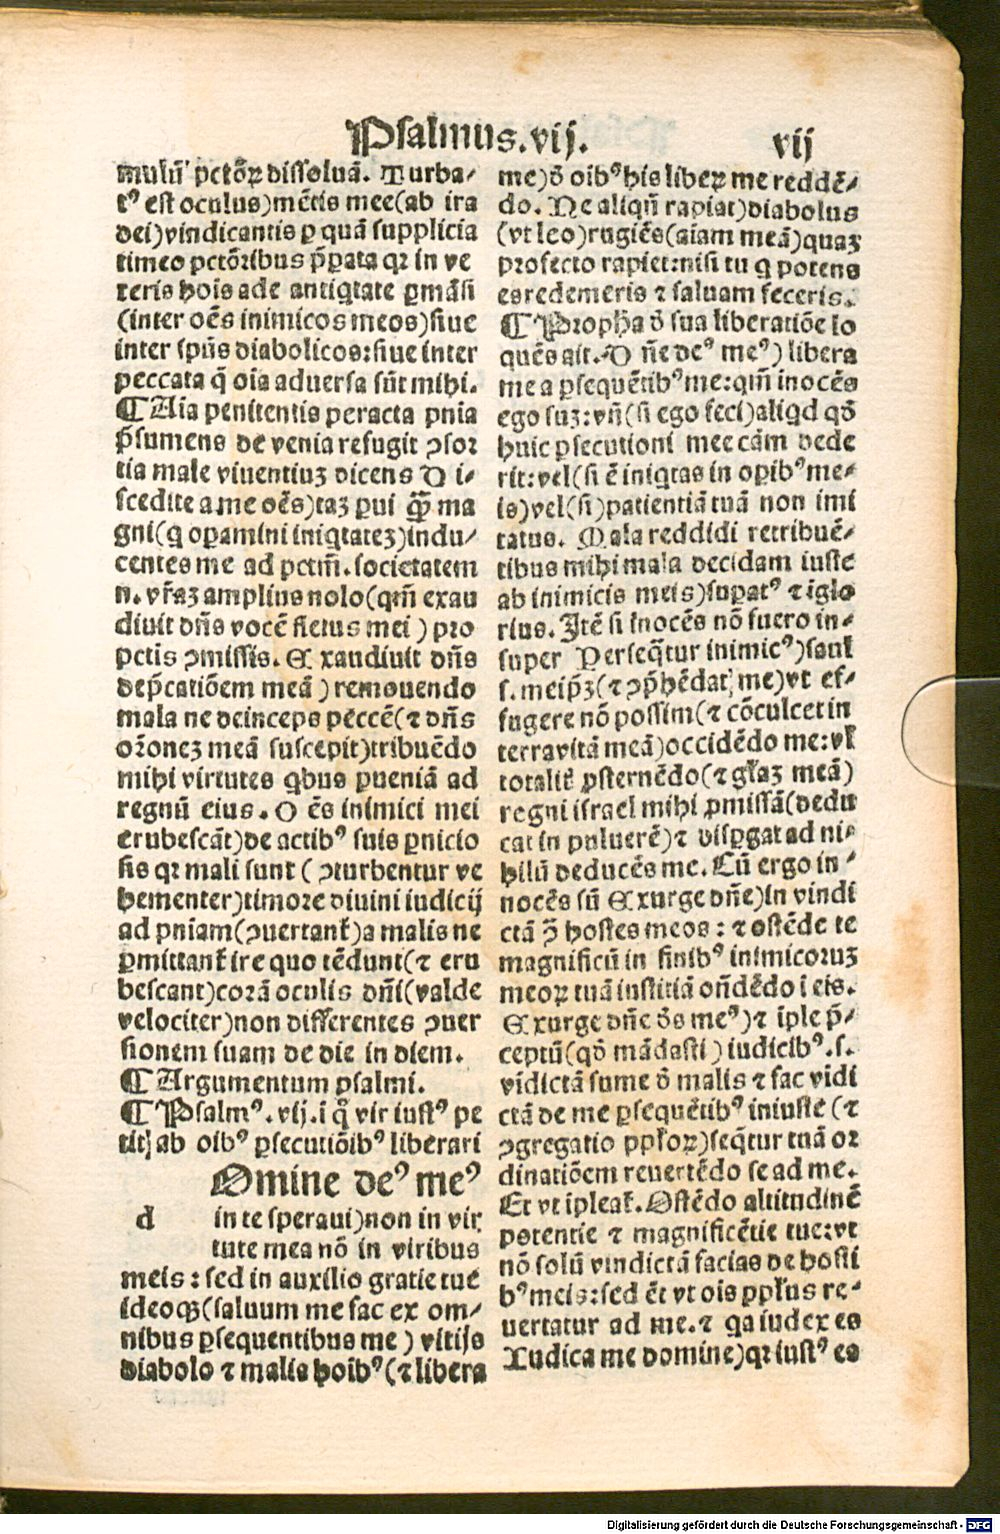 Psalmus.vij.
vij
mulũ' pctõꝝ dissoluã. Turba⸗
tꝰ est oculus)mẽtis mee(ab ira
dei)vindicantis ꝑ quã supplicia
timeo pctõribus p̃pata qꝛ in ve
teris hoĩs ade antiqtate ꝑmãsi
(inter oẽs inimicos meos)siue
inter spũs diabolicos:siue inter
peccata q̃ oĩa aduersa sũt mihi.
¶Aĩa penitentis peracta pnĩa
p̃sumens de venia refugit ↄsoꝛ
tia male viuentiuʒ dicens Di⸗
scedite a me oẽs)taʒ pui qȝ̃ ma
gni(q oꝑamini iniqtateʒ)indu⸗
centes me ad pctm̃.societatem
n.vr̃aʒ amplius nolo(qm̃ exau
diuit dñs vocẽ fletus mei)pꝛo
pctis ↄmissis.Exaudiuit dñs
dep̃catiõem meã)remouendo
mala ne deinceps peccẽ(⁊ dñs
oꝛ̃oneʒ meã suscepit)tribuẽdo
mihi virtutes qbus ꝑueniã ad
regnũ eius.Oẽs inimici mei
erubescãt)de actibꝰ suis ꝑnicio
sis qꝛ mali sunt(ↄturbentur ve
hementer)timoꝛe diuini iudicij
ad pniam(ↄuertanť)a malis ne
ꝑmittanť ire quo tẽdunt(⁊ eru
bescant)coꝛã oculis dñi(valde
velociter)non differentes ↄuer
sionem suam de die in diem.
¶Argumentum psalmi.
¶Psalmꝰ.vij.i q̃ vir iustꝰ pe
tit)ab oibꝰ ꝑsecutiõibꝰ liberari
Omine deꝰ meꝰ
d in te speraui)non in vir
tute mea nõ in viribus
meis:sed in auxilio gratie tue
ideoqȝ(saluum me fac ex om⸗
nibus ꝑsequentibus me)vitijs
diabolo ⁊ malis hoĩbꝰ(⁊ libera
me)õ oibꝰ his liberꝝ me reddẽ⸗
do.Ne aliqñ rapiat)diabolus
(vt leo)rugiẽs(aĩam meã)quaʒ
pꝛofecto rapiet:nisi tu q potens
es redemeris ⁊ saluam feceris.
¶Pꝛopha õ sua liberatiõe lo
quẽs ait.Dñe deꝰ meꝰ)libera
me a ꝑsequẽtibꝰ me:qm̃ inocẽs
ego suʒ:vñ(si ego feci)aliqd qõ
huic ꝑsecutioni mee cãm dede
rit:vel(si ẽ iniqtas in oꝑibꝰ me⸗
is)vel(si)patientiã tuã non imi
tatus. Mala reddidi retribuẽ⸗
tibus mihi mala decidam iuste
ab inimicis meis)suꝑatꝰ ⁊ iglo
rius.Itẽ si inocẽs nõ fuero in⸗
super Perseq̃tur inimicꝰ)saul
s.meip̃ʒ(⁊ ↄp̃hẽdat me)vt ef⸗
fugere nõ possim(⁊ cõculcet in
terra vitã meã)occidẽdo me:vľ
totalit̃ ꝓsternẽdo(⁊ gľaʒ meã)
regni israel mihi ꝓmissã(dedu
cat in puluerẽ)⁊ disꝑgat ad ni⸗
hilũ deducẽs me.Cũ ergo in⸗
nocẽs sũ Exurge dñe)in vindi
ctã ↄ̃ hostes meos:⁊ ostẽde te
magnificũ in finibꝰ inimicoꝛuʒ
meoꝝ tuã iustitiã oñdẽdo i eis.
Exurge dñe õs meꝰ)⁊ iple p̃⸗
ceptũ(qõ mãdasti)iudicibꝰ.s.
vidictã sume õ malis ⁊ fac vidi
ctã de me ꝑsequẽtibꝰ iniuste(⁊
ↄgregatio ppľoꝝ)seq̃tur tuã oꝛ
dinatiõem reuertẽdo se ad me.
Et vt ipleať.Ostẽdo altitudinẽ
potentie ⁊ magnificẽtie tue:vt
nõ solũ vindictã facias de hosti
bꝰ meis:sed ẽt vt oĩs ppľus re⸗
uertatur ad me.⁊ qa iudex es
Iudica me domine)qꝛ iustꝰ es
Digitalisierung gefördert durch die Deutsche Forschungsgemeinschaft - DFG